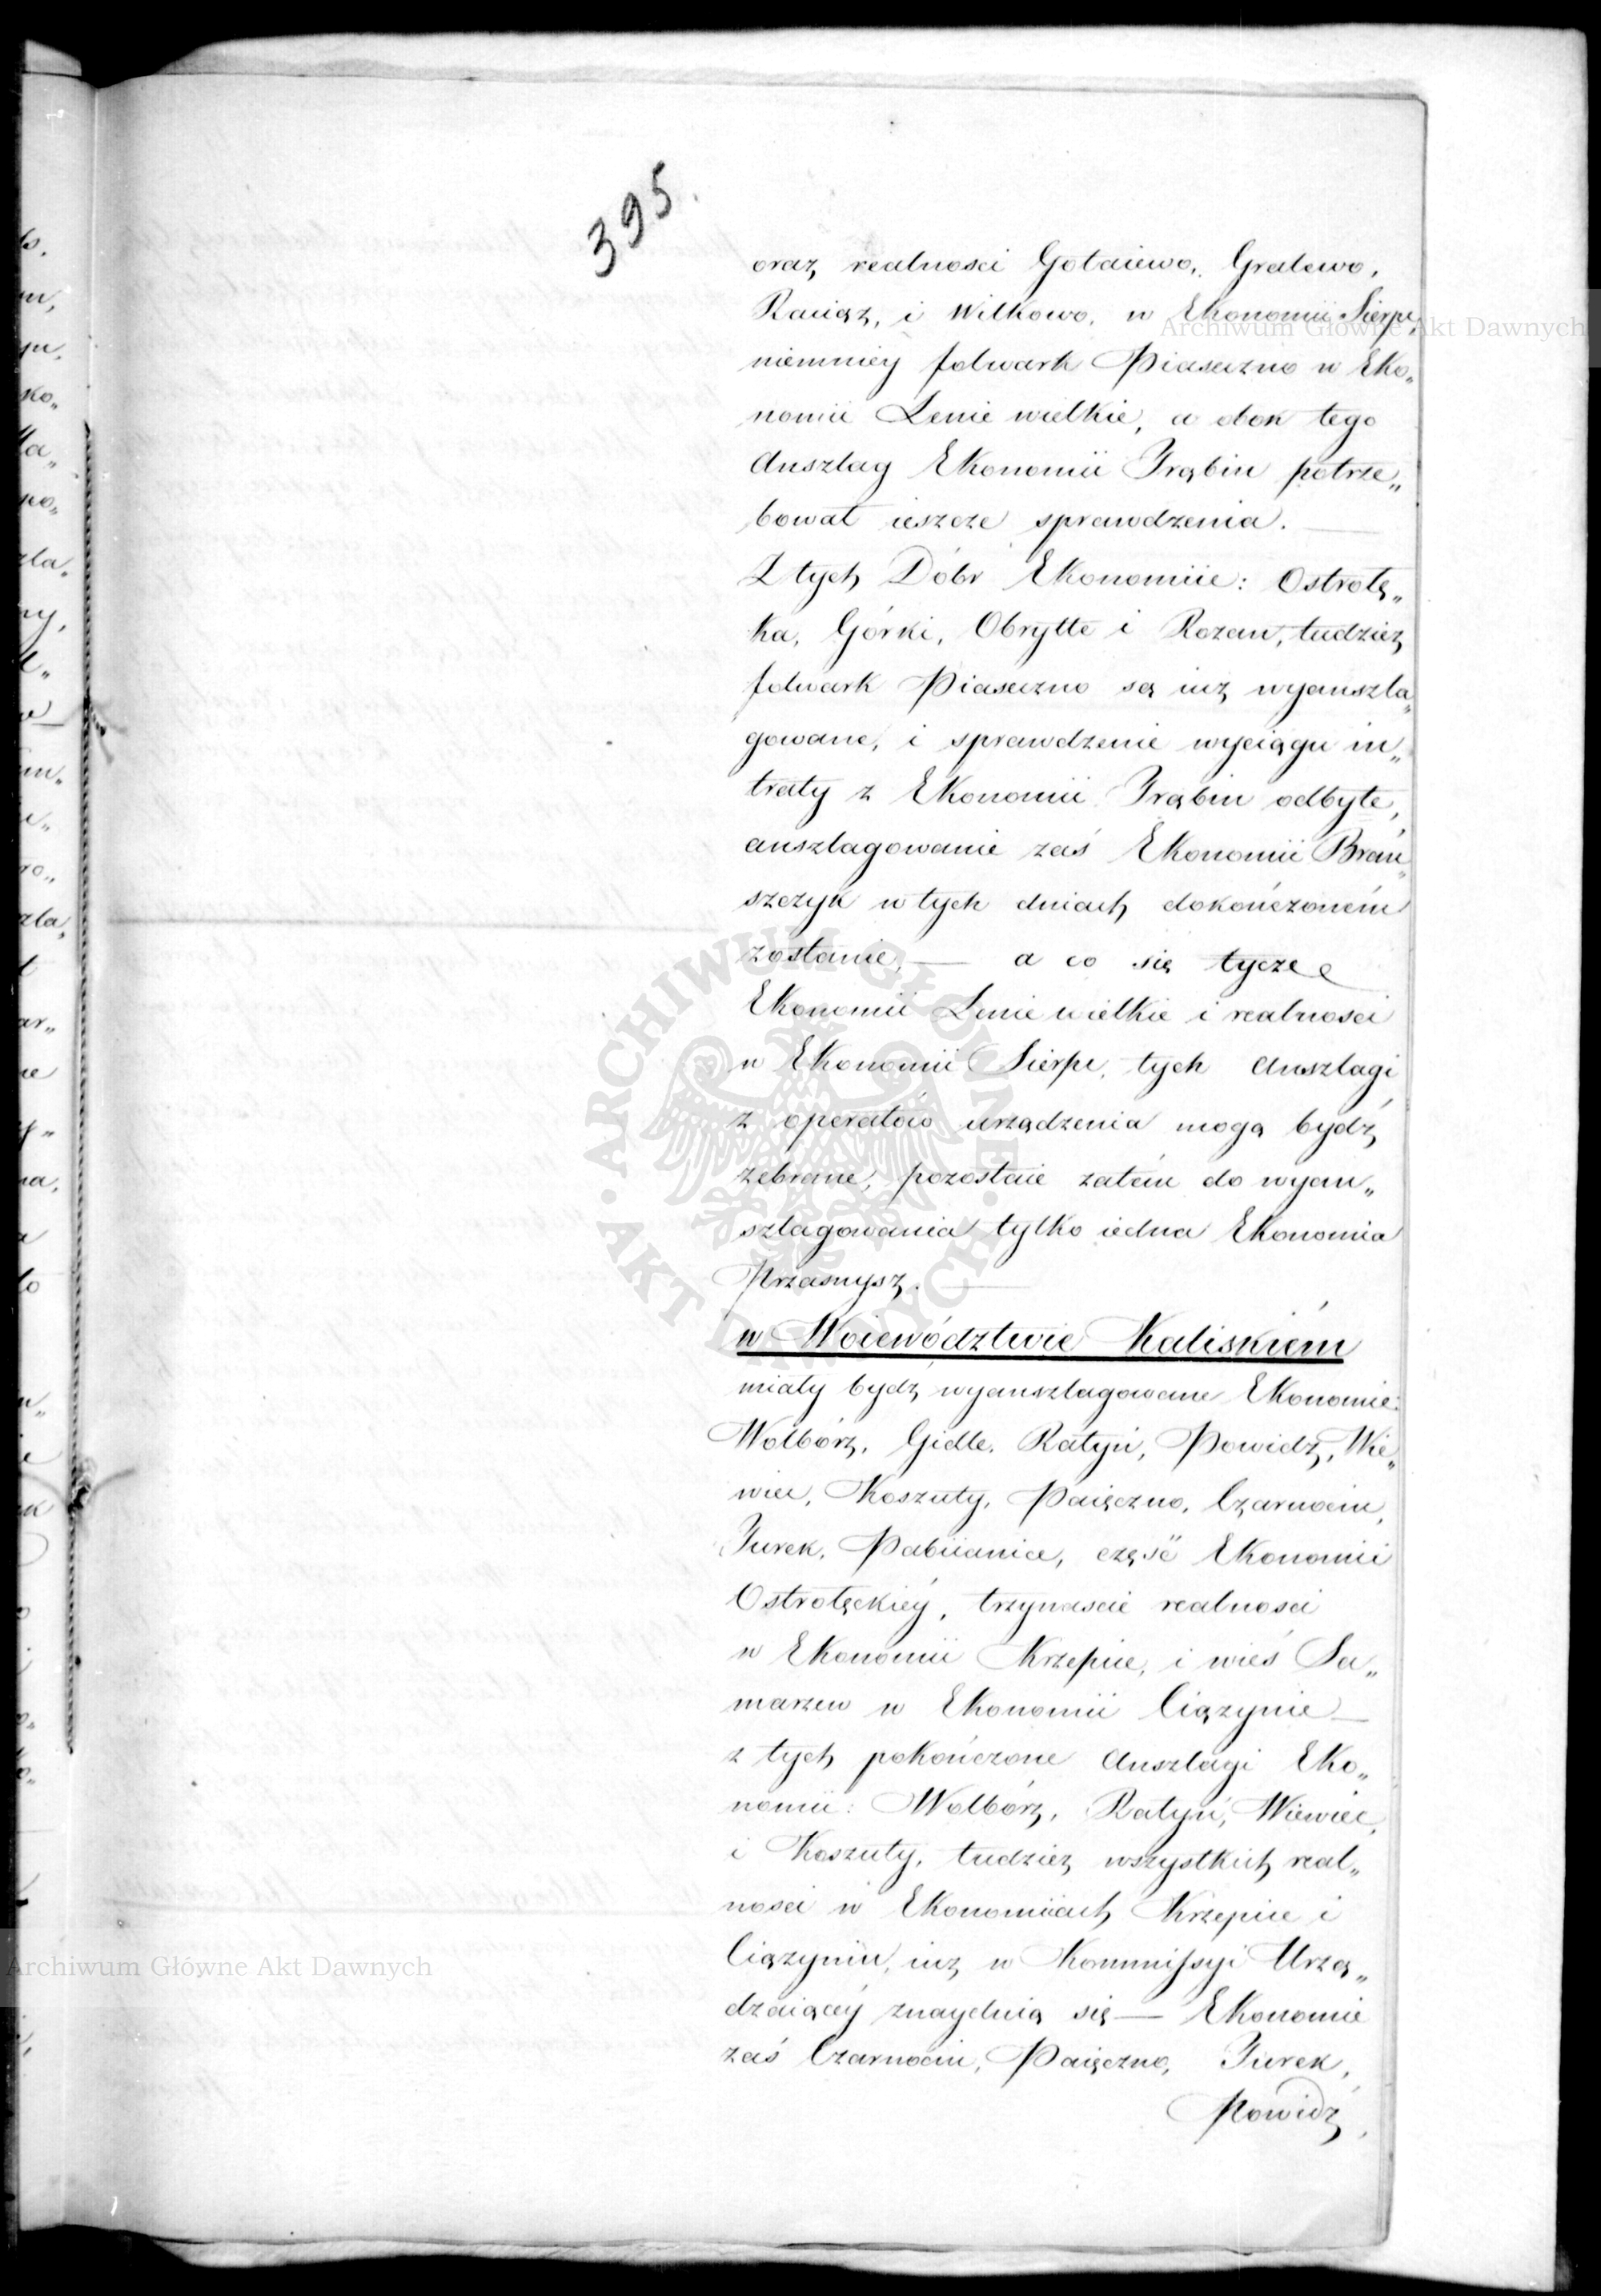 395.
oraz realnosci Gołaiewo, Gralewo,
Raciąz, i Wilkowo, w Ekonomii Sierpc,
niemniey folwark Piaseczno w Eko„
nomii Lenie wielkie, a obok tego
Anszlag Ekonomii Trąbin potrze„
bował ieszcze sprawdzenia. —
Z tych Dóbr Ekonomiie: Ostrołę„
ka, Górki, Obrytte i Rozan, tudziez
folwark Piaseczno są iuz wyanszla„
gowane, i sprawdzenie wyciągu in„
traty z Ekonomii Trąbin odbyte,
anszlagowanie zaś Ekonomii Brań„
szczyk w tych dniach dokończoném
zostanie, — a co się tycze
Ekonomii Lenie wielkie i realnosci
w Ekonomii Sierpc, tych Anszlagi
z operatów urządzenia mogą bydź
zebrane, pozostaie zatém do wyan„
szlagowania tylko iedna Ekonomia
Przasnysz. —
w Woiewództwie Kaliskiém
miały bydz wyanszlagowane Ekonomie:
Wolbórz, Gidle, Ratyń, Powidz, Wie„
wiec, Koszuty, Paięczno, Czarnocin,
Turek, Pabiianice, część Ekonomii
Ostrołęckiéy, trzynascie realnosci
w Ekonomii Krzepice, i wieś Sa„
marzew w Ekonomii Ciązynie —
z tych pokończone Anszlagi Eko„
nomii: Wolbórz, Ratyń, Wiewiec,
i Koszuty, tudziez wszystkich real„
nosci w Ekonomiiach Krzepice i
Ciązyniu, iuz w Kommissyi Urzą„
dzaiącéy znayduią się — Ekonomie
zaś Czarnocin, Paięczno, Turek,
Powidz,
Archiwum Główne Akt Dawnych
Archiwum Główne Akt Dawnych
ARCHIWUM GŁÓWNE AKT DAWNYCH